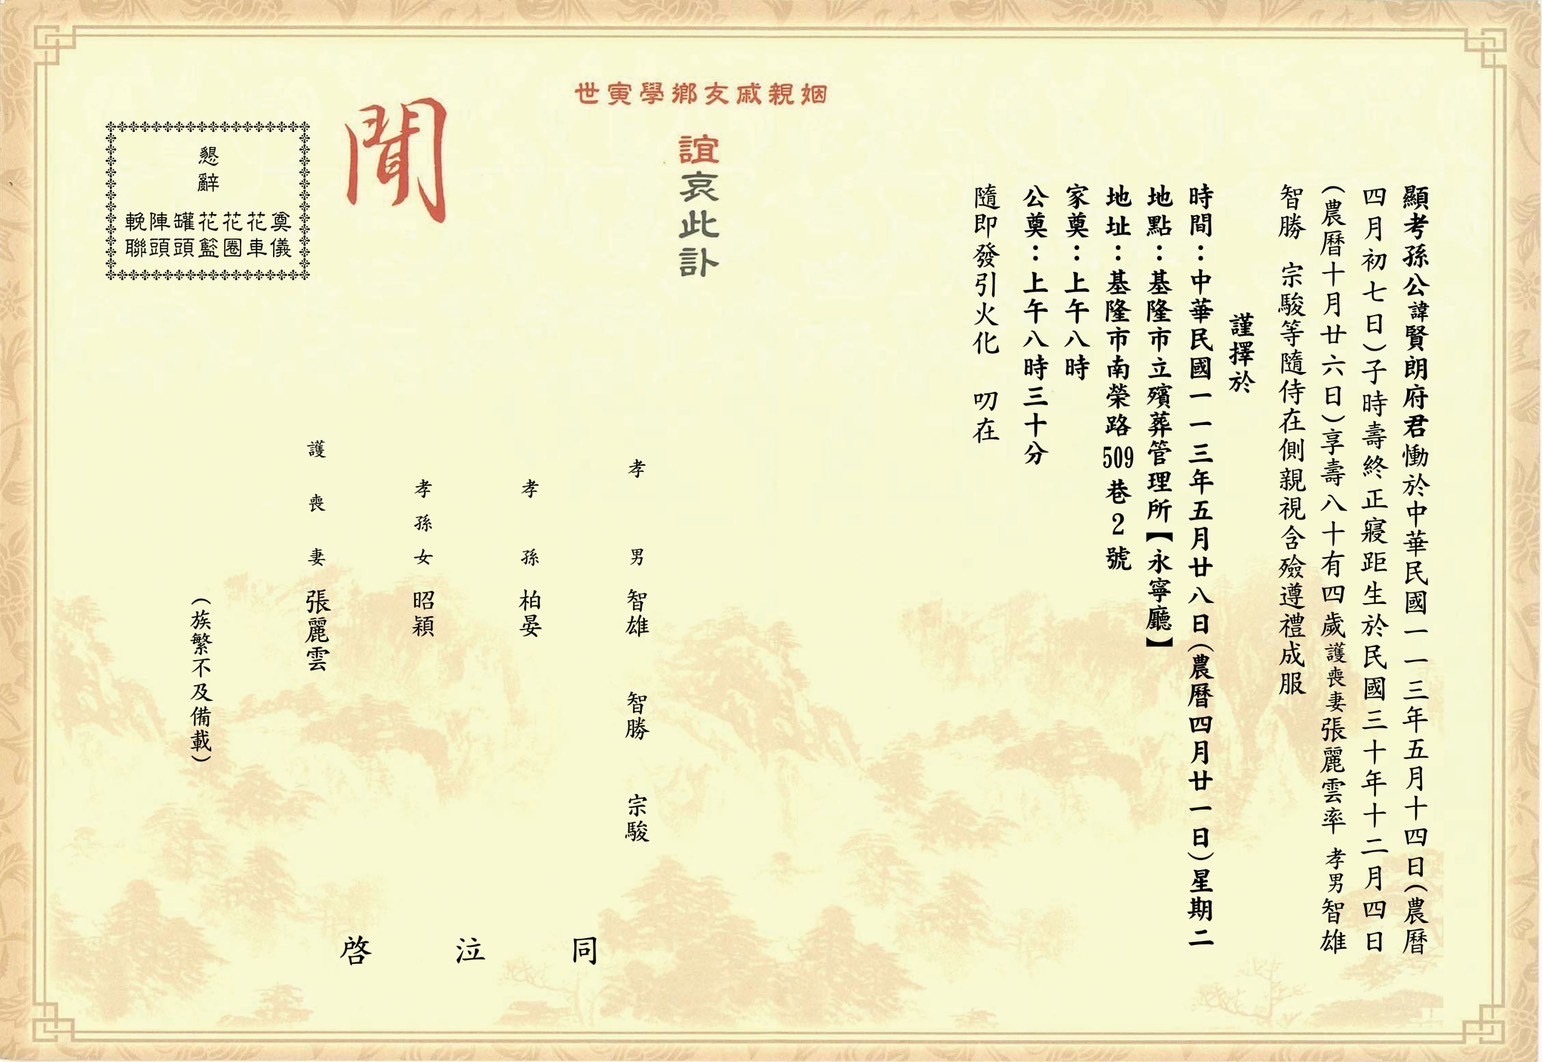 顯考孫公諱賢朗府君慟於中華民國一一三年五月十四日(農曆
四月初七日)子時壽終正寢距生於民國三十年十二月四日
(農曆十月廿六日)享壽八十有四歲護喪妻張麗雲率 孝男智雄
智勝 宗駿等隨侍在側親視含殮遵禮成服
謹擇於
時間：中華民國一一三年五月廿八日(農曆四月廿一日)星期二
地點：基隆市立殯葬管理所【永寧廳】
地址：基隆市南榮路509巷2號
家奠：上午八時
公奠：上午八時三十分
隨即發引火化 叨在
姻親戚友鄉學寅世
誼哀此訃
聞
孝男 智雄 智勝 宗駿
孝孫 柏晏
孝孫女 昭穎
護喪妻 張麗雲
(族繁不及備載)
同泣啓
懇辭
奠儀
花車
花圈
花籃
罐頭
陣頭
輓聯